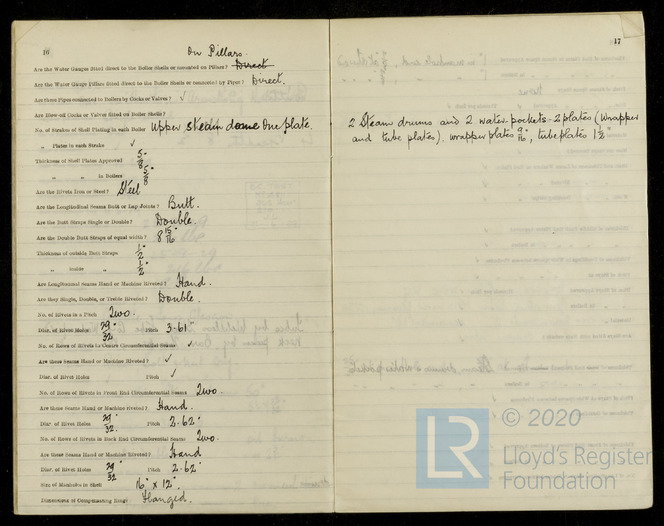 16
On Pillars.
Are the Water Gauges fitted direct to the Boiler Shells or mounted on Pillars? Direct
Are the Water Gauge Pillars fitted direct to the Boiler Shells or connected by Pipes? Direct.
Are these Pipes connected to Boilers by Cocks or Valves? ✓
Are Blow-off Cocks or Valves fitted on Boiler Shells?
No. of Strakes of Shell Plating in each Boiler Upper steam dome One plate.
„ Plates in each Strake ✓
Thickness of Shell Plates Approved 5/8"
„ „ in Boilers 5/8"
Are the Rivets Iron or Steel? Steel
Are the Longitudinal Seams Butt or Lap Joints? Butt.
Are the Butt Straps Single or Double? Double.
Are the Double Butt Straps of equal width? 8 15/16"
Thickness of outside Butt Straps 1/2"
„ inside „ 1/2"
Are Longitudinal Seams Hand or Machine Riveted? Hand.
Are they Single, Double, or Treble Riveted? Double.
No. of Rivets in a Pitch Two.
Diar. of Rivet Holes 29/32" Pitch 3.61"
No. of Rows of Rivets in Centre Circumferential Seams ✓
Are these Seams Hand or Machine Riveted? ✓
Diar. of Rivet Holes Pitch ✓
No. of Rows of Rivets in Front End Circumferential Seams Two.
Are these Seams Hand or Machine riveted? Hand.
Diar. of Rivet Holes 29/32" Pitch 2.62"
No. of Rows of Rivets in Back End Circumferential Seams Two.
Are these Seams Hand or Machine Riveted? Hand
Diar. of Rivet Holes 29/32" Pitch 2.62"
Size of Manholes in Shell 16" x 12".
Dimensions of Compensating Rings Flanged.
17
2 Steam drums and 2 water pockets - 2 plates (wrapper
and tube plates). wrapper plates 9/16", tube plates 1 1/2"
© 2020
LR
Lloyd's Register
Foundation